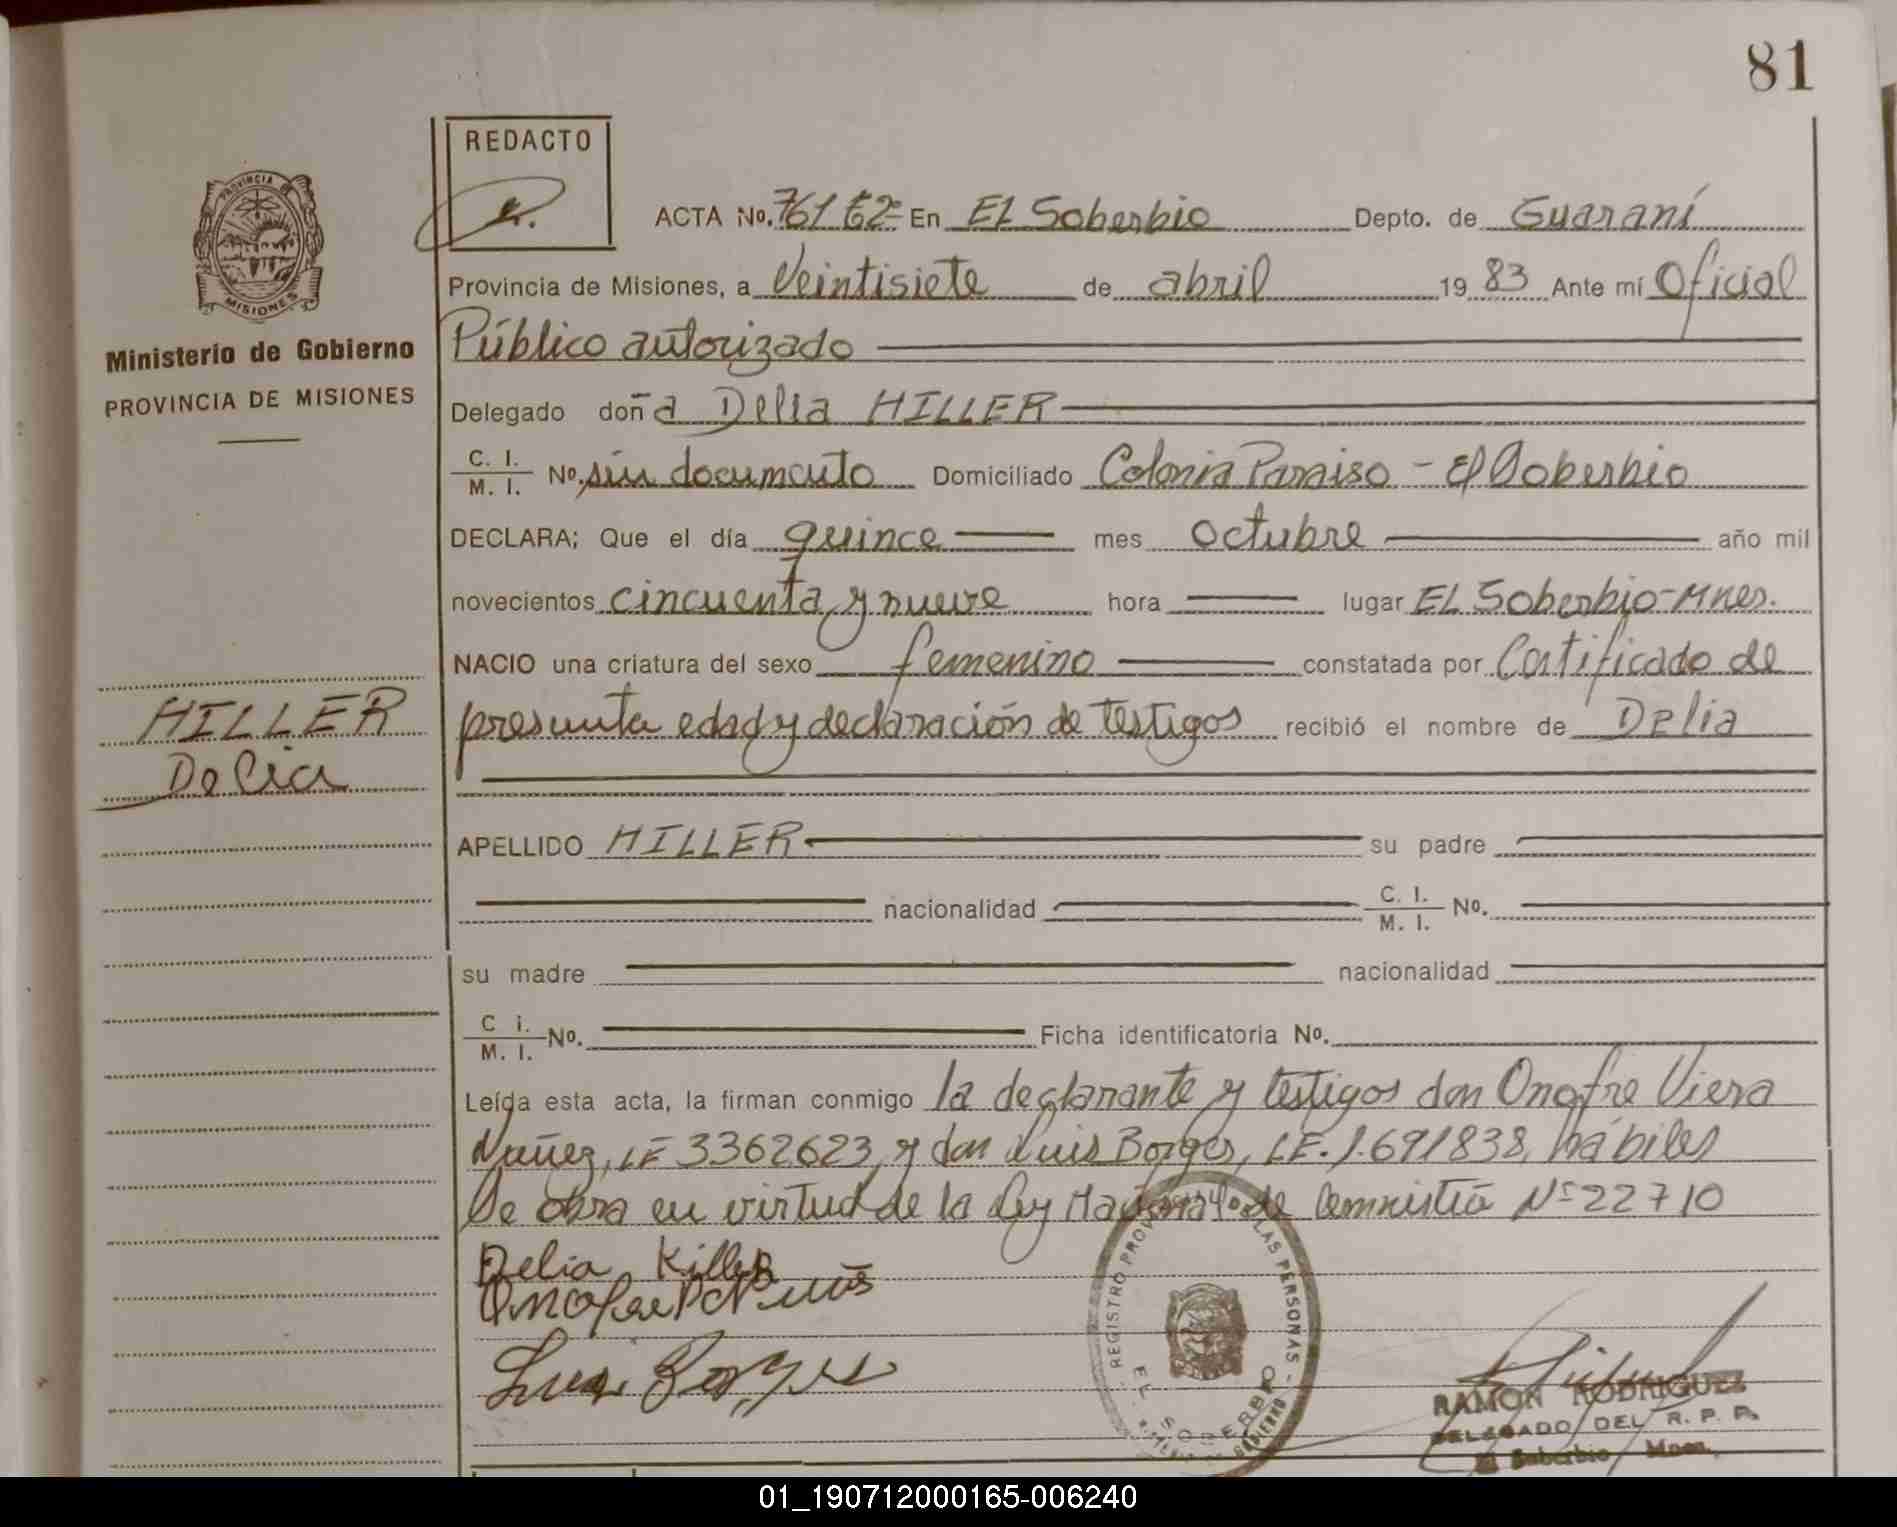 81
REDACTO
PROVINCIA DE
MISIONES
Ministerio de Gobierno
PROVINCIA DE MISIONES
ACTA No. En El Soberbio Depto. de Guaraní
Provincia de Misiones, a Veintisiete de abril 1983 Ante mí Oficial
Público autorizado
Delegado doña Delia HILLER
C. I. / M. I. No. sin documento Domiciliado Colonia Paraiso - El Soberbio
DECLARA; Que el día quince mes octubre año mil
novecientos cincuenta y nueve hora lugar EL Soberbio-Mnes.
NACIO una criatura del sexo femenino constatada por Certificado de
presunta edad y declaración de testigos recibió el nombre de Delia
HILLER
Delia
APELLIDO HILLER su padre
nacionalidad C. I. / M. I. No.
su madre nacionalidad
C i. / M. I. No. Ficha identificatoria No.
Leída esta acta, la firman conmigo la declarante y testigos don Onofre Viera
Nuñez, LE 3362623, y don Luis Borges, LE. 1.691838, hábiles
Se obra en virtud de la Ley Nacional de Amnistía Nº 22710
Delia Killer
Luis Borges
REGISTRO PROV DE LAS PERSONAS
EL SOBERBIO
RAMON RODRIGUEZ
DELEGADO DEL R. P. P.
El Soberbio Mnes.
01_190712000165-006240